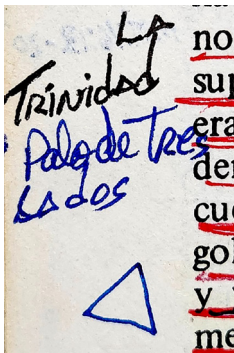 LA
TRINIDAD
Palo de Tres
LADOS
no
sup
era
der
cue
gol
y
me